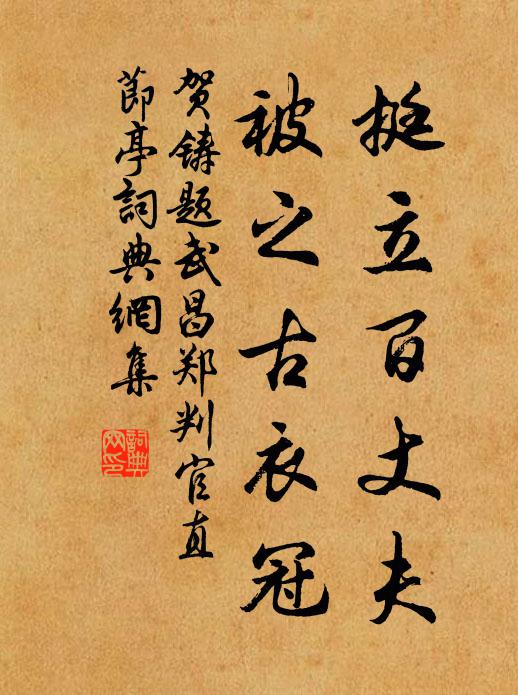 挺立百丈夫
被之古衣冠
贺鑄题武昌郑判官直
節亭詞典網集
詞典網印